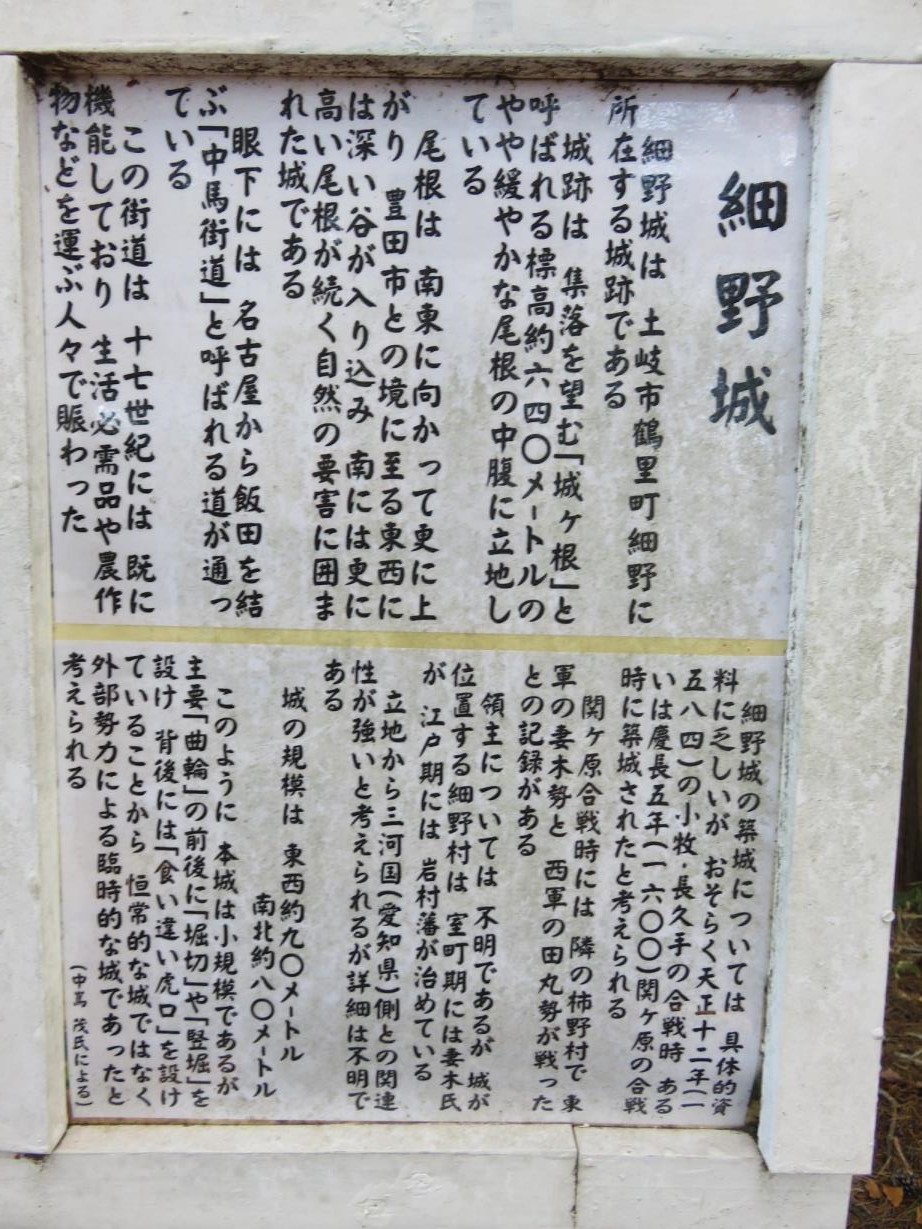 細野城
細野城は 土岐市鶴里町細野に
所在する城跡である
城跡は 集落を望む「城ヶ根」と
呼ばれる標高約六四〇メートルの
やや緩やかな尾根の中腹に立地し
ている
尾根は 南東に向かって更に上
がり 豊田市との境に至る東西に
は深い谷が入り込み 南には更に
高い尾根が続く自然の要害に囲ま
れた城である
眼下には 名古屋から飯田を結
ぶ「中馬街道」と呼ばれる道が通っ
ている
この街道は 十七世紀には 既に
機能しており 生活必需品や農作
物などを運ぶ人々で賑わった
細野城の築城については 具体的資
料に乏しいが おそらく天正十二年(一
五八四)の小牧・長久手の合戦時 ある
いは慶長五年(一六〇〇)関ヶ原の合戦
時に築城されたと考えられる
関ヶ原合戦時には 隣の柿野村で 東
軍の妻木勢と 西軍の田丸勢が戦った
との記録がある
領主については 不明であるが 城が
位置する細野村は 室町期には妻木氏
が 江戸期には 岩村藩が治めている
立地から三河国(愛知県)側との関連
性が強いと考えられるが詳細は不明で
ある
城の規模は 東西約九〇メートル
南北約八〇メートル
このように 本城は小規模であるが
主要「曲輪」の前後に「堀切」や「竪堀」を
設け 背後には「食い違い虎口」を設け
ていることから 恒常的な城ではなく
外部勢力による臨時的な城であったと
考えられる
(中嶌 茂氏による)